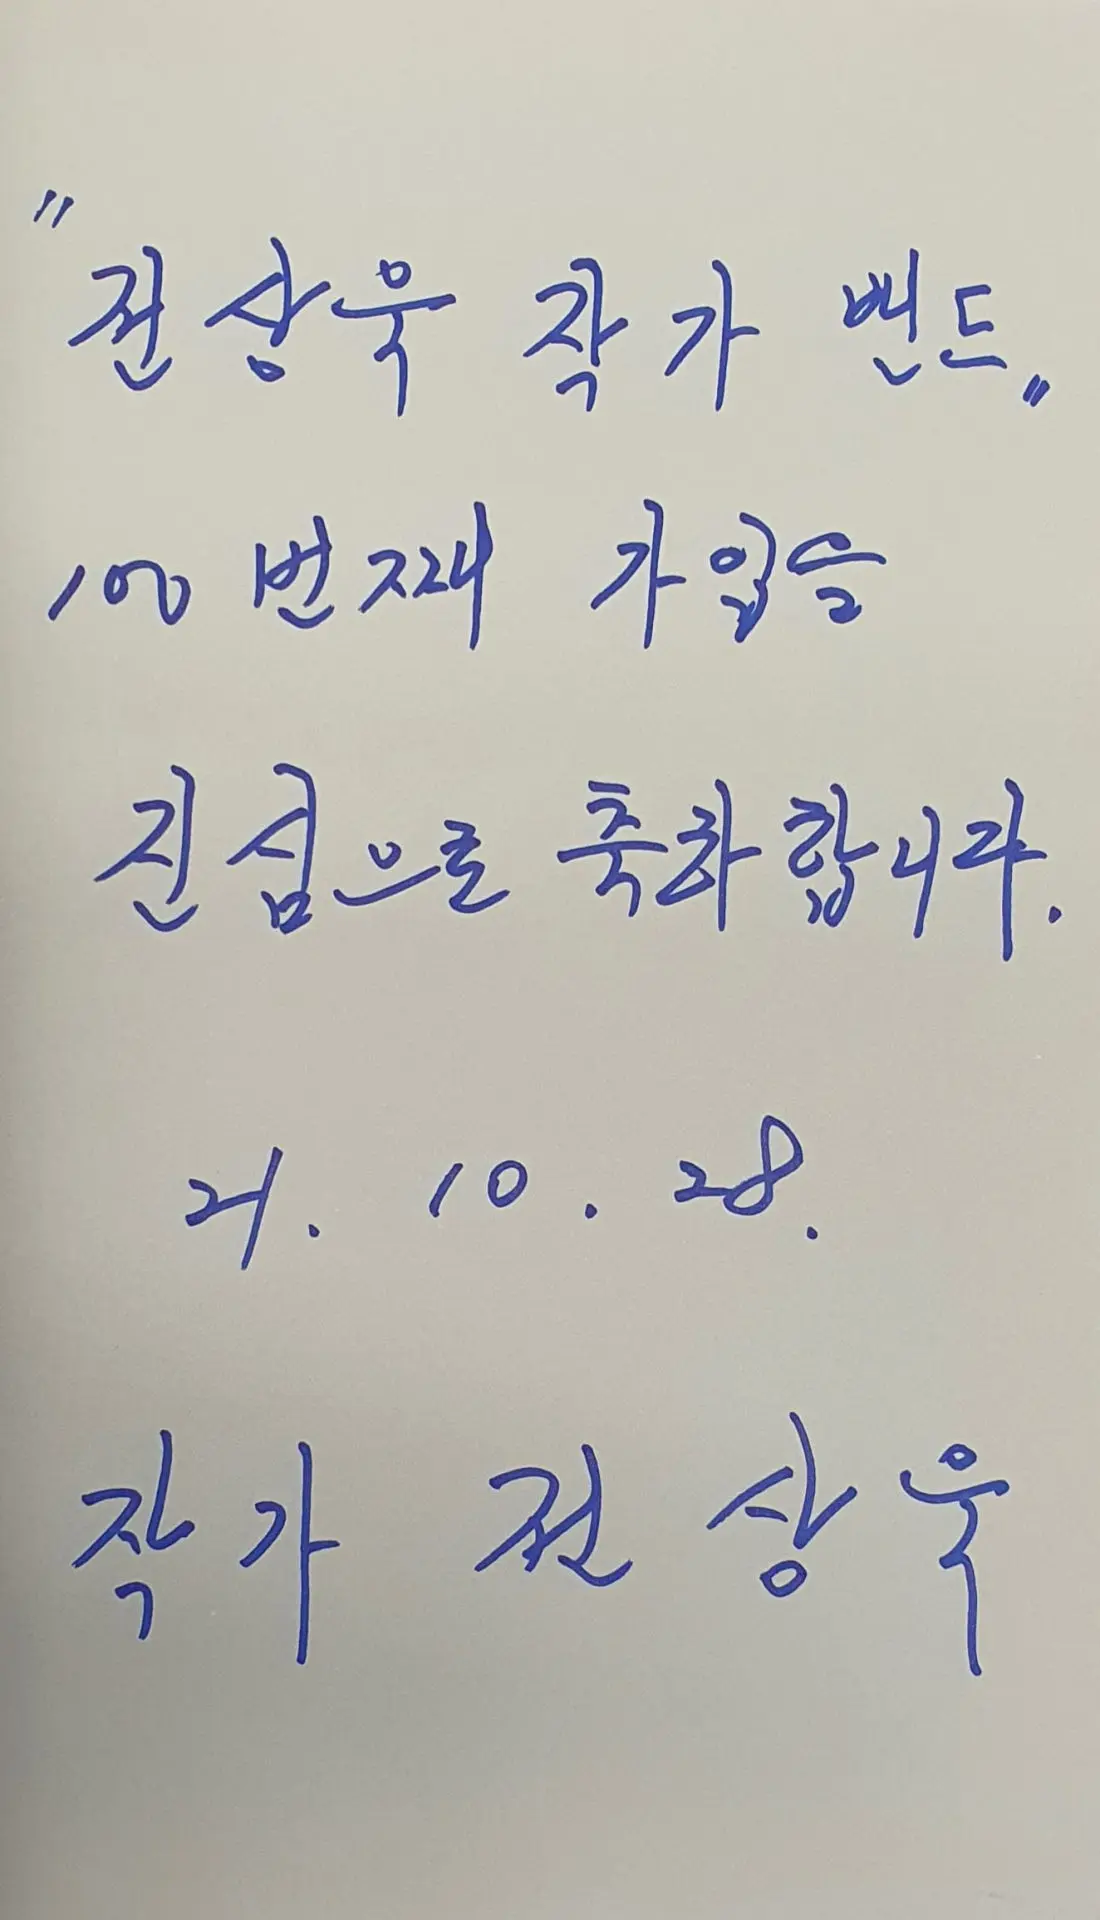 "전상욱 작가 밴드"
100번째 가입을
진심으로 축하합니다.
21. 10. 28.
작가 전상욱